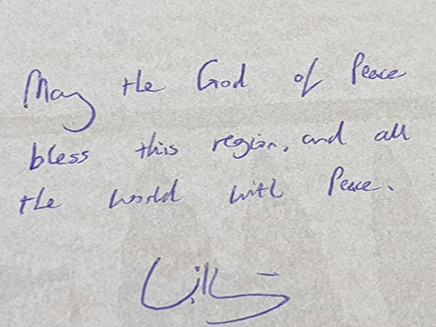 May the God of Peace
bless this region, and all
the world with Peace.